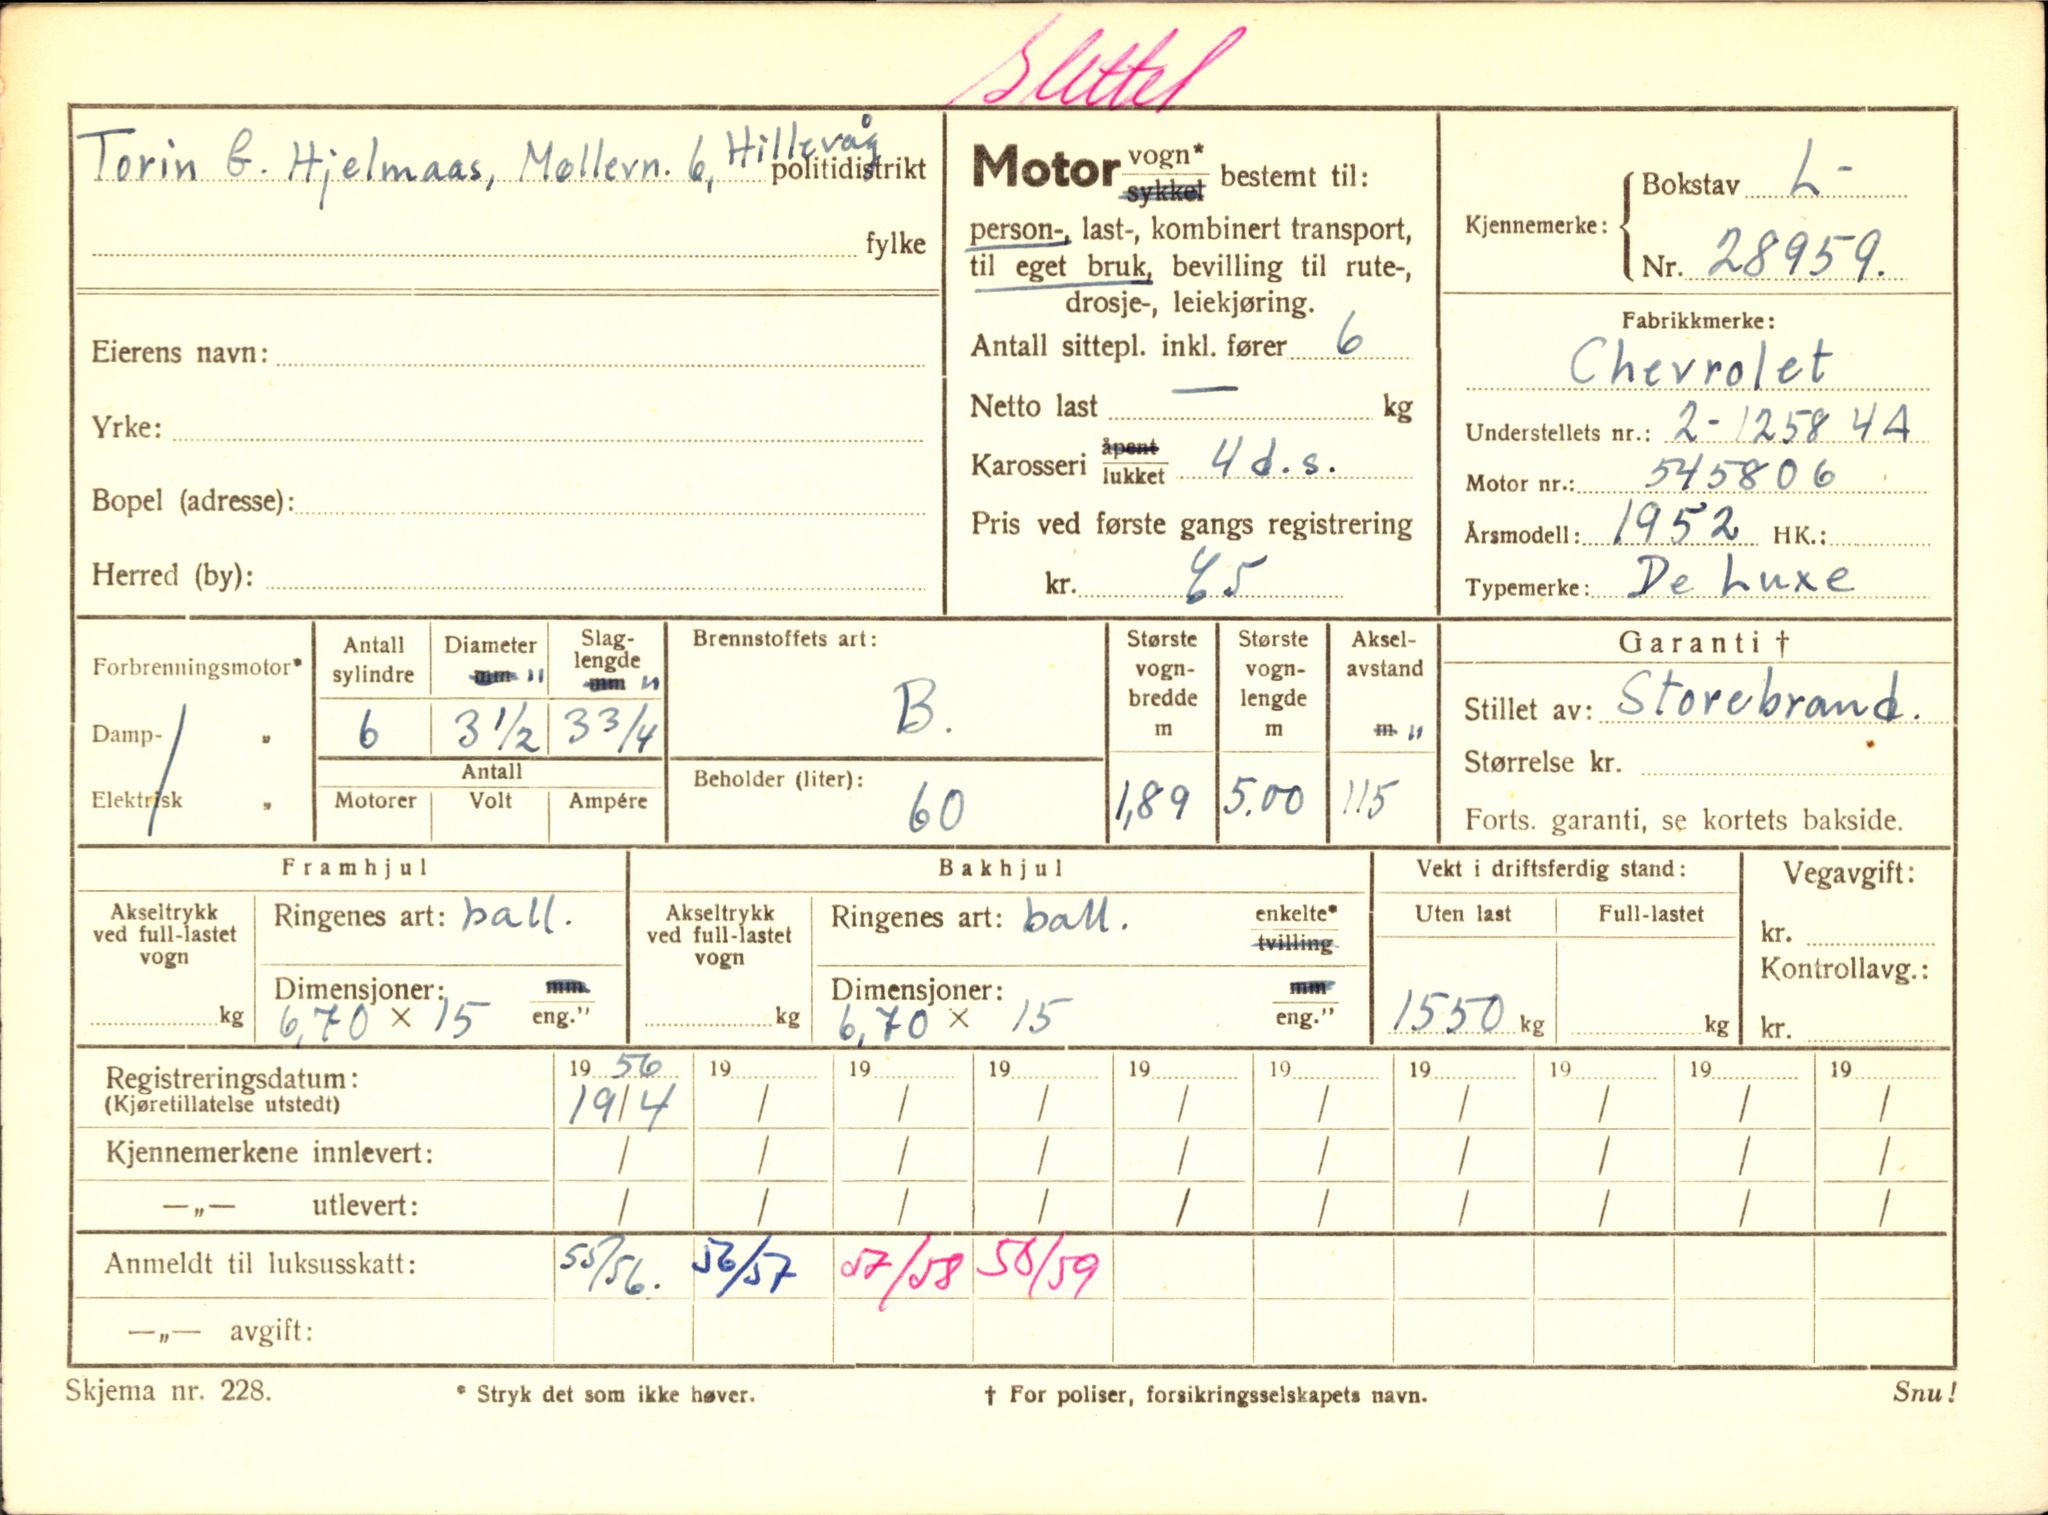 Slettet
Torin G. Hjelmaas, Møllevn. 6, Hillevåg politidistrikt
fylke
Eierens navn:
Yrke:
Bopel (adresse):
Herred (by):
Motor vogn* sykkel bestemt til:
person-, last-, kombinert transport,
til eget bruk, bevilling til rute-,
drosje-, leiekjøring.
Antall sittepl. inkl. fører 6
Netto last — kg
Karosseri åpent lukket 4 d.s.
Pris ved første gangs registrering
kr. 65
Kjennemerke: Bokstav L-
Nr. 28959.
Fabrikkmerke:
Chevrolet
Understellets nr.: 2-125844
Motor nr.: 545806
Årsmodell: 1952 HK.:
Typemerke: De Luxe
Forbrenningsmotor*
Damp- „
Elektrisk „
Antall sylindre
6
Diameter mm "
3 1/2
Slag-
lengde
mm "
3 3/4
Antall
Motorer Volt Ampére
Brennstoffets art:
B.
Beholder (liter):
60
Største
vogn-
bredde
m
1,89
Største
vogn-
lengde
m
5.00
Aksel-
avstand
m "
115
Garanti †
Stillet av: Storebrand.
Størrelse kr.
Forts. garanti, se kortets bakside.
Framhjul
Akseltrykk
ved full-lastet
vogn
kg
Ringenes art: ball.
Dimensjoner: mm
6,70 × 15 eng."
Bakhjul
Akseltrykk
ved full-lastet
vogn
kg
Ringenes art: ball. enkelte*
tvilling
Dimensjoner: mm
6,70 × 15 eng."
Vekt i driftsferdig stand:
Uten last Full-lastet
1550 kg kg
Vegavgift:
kr.
Kontrollavg.:
kr.
Registreringsdatum: 19 56 19 19 19 19 19 19 19 19 19
(Kjøretillatelse utstedt) 19/4 / / / / / / / / /
Kjennemerkene innlevert: / / / / / / / / / /
—„— utlevert: / / / / / / / / / /
Anmeldt til luksusskatt: 55/56. 56/57 57/58 58/59
—„— avgift:
Skjema nr. 228. * Stryk det som ikke høver. † For poliser, forsikringsselskapets navn. Snu!